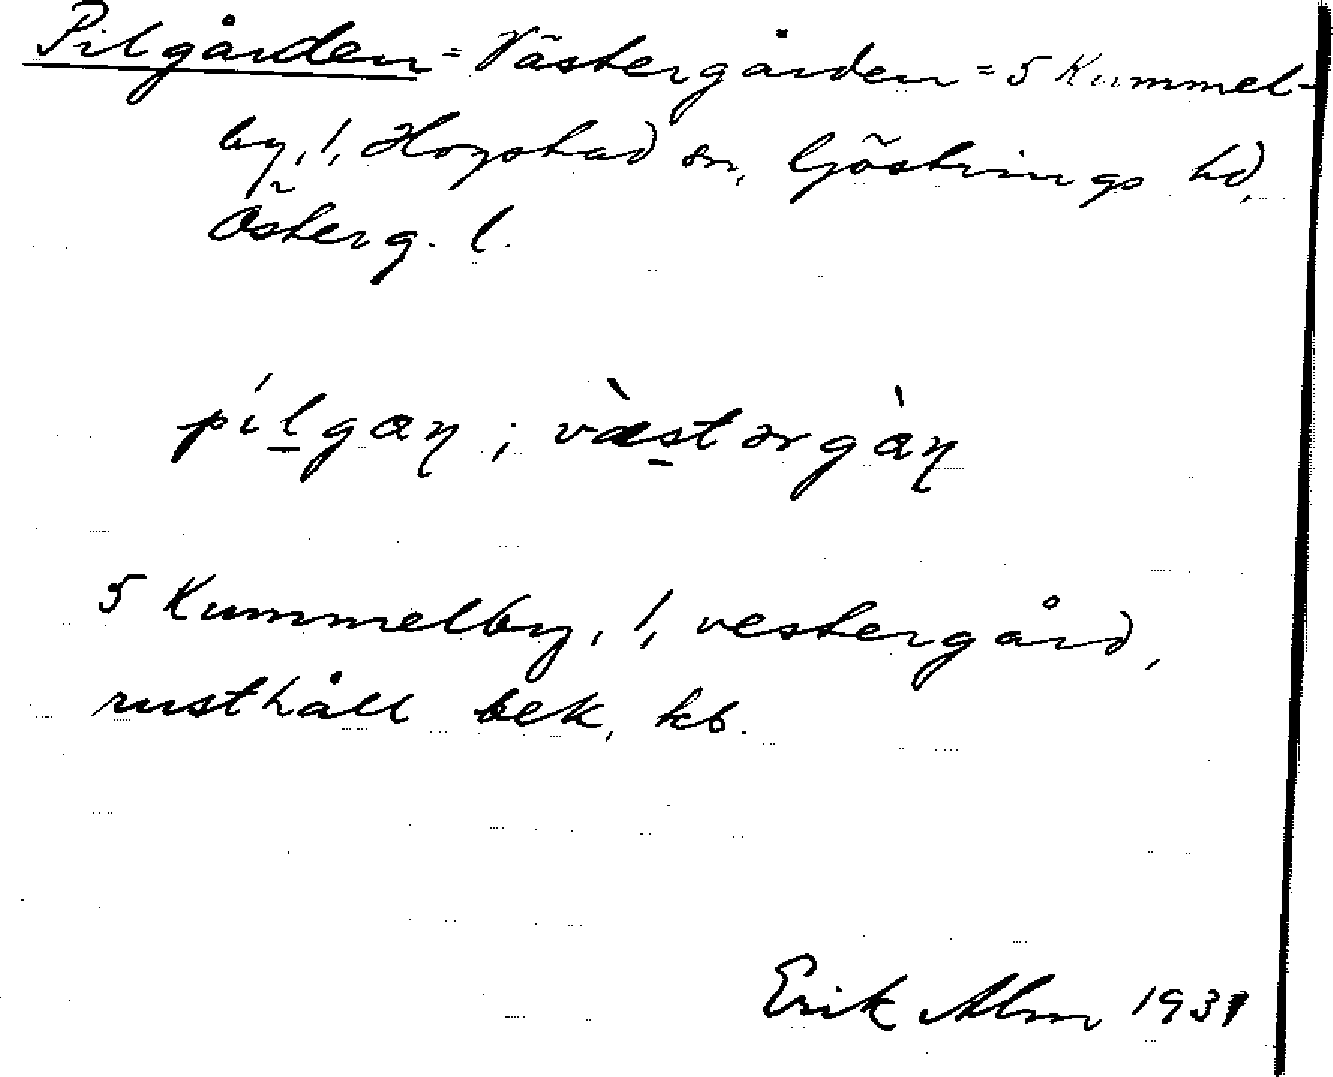 Pilgården = Västergården = 5 Kummel-
by, 1, Hogstad sn, Göstrings hd,
Österg. l.
pílgaɳ ; væ̀stərgàɳ
5 Kummelby, 1, vestergård,
rusthåll bek, kb.
Erik Alm 1931